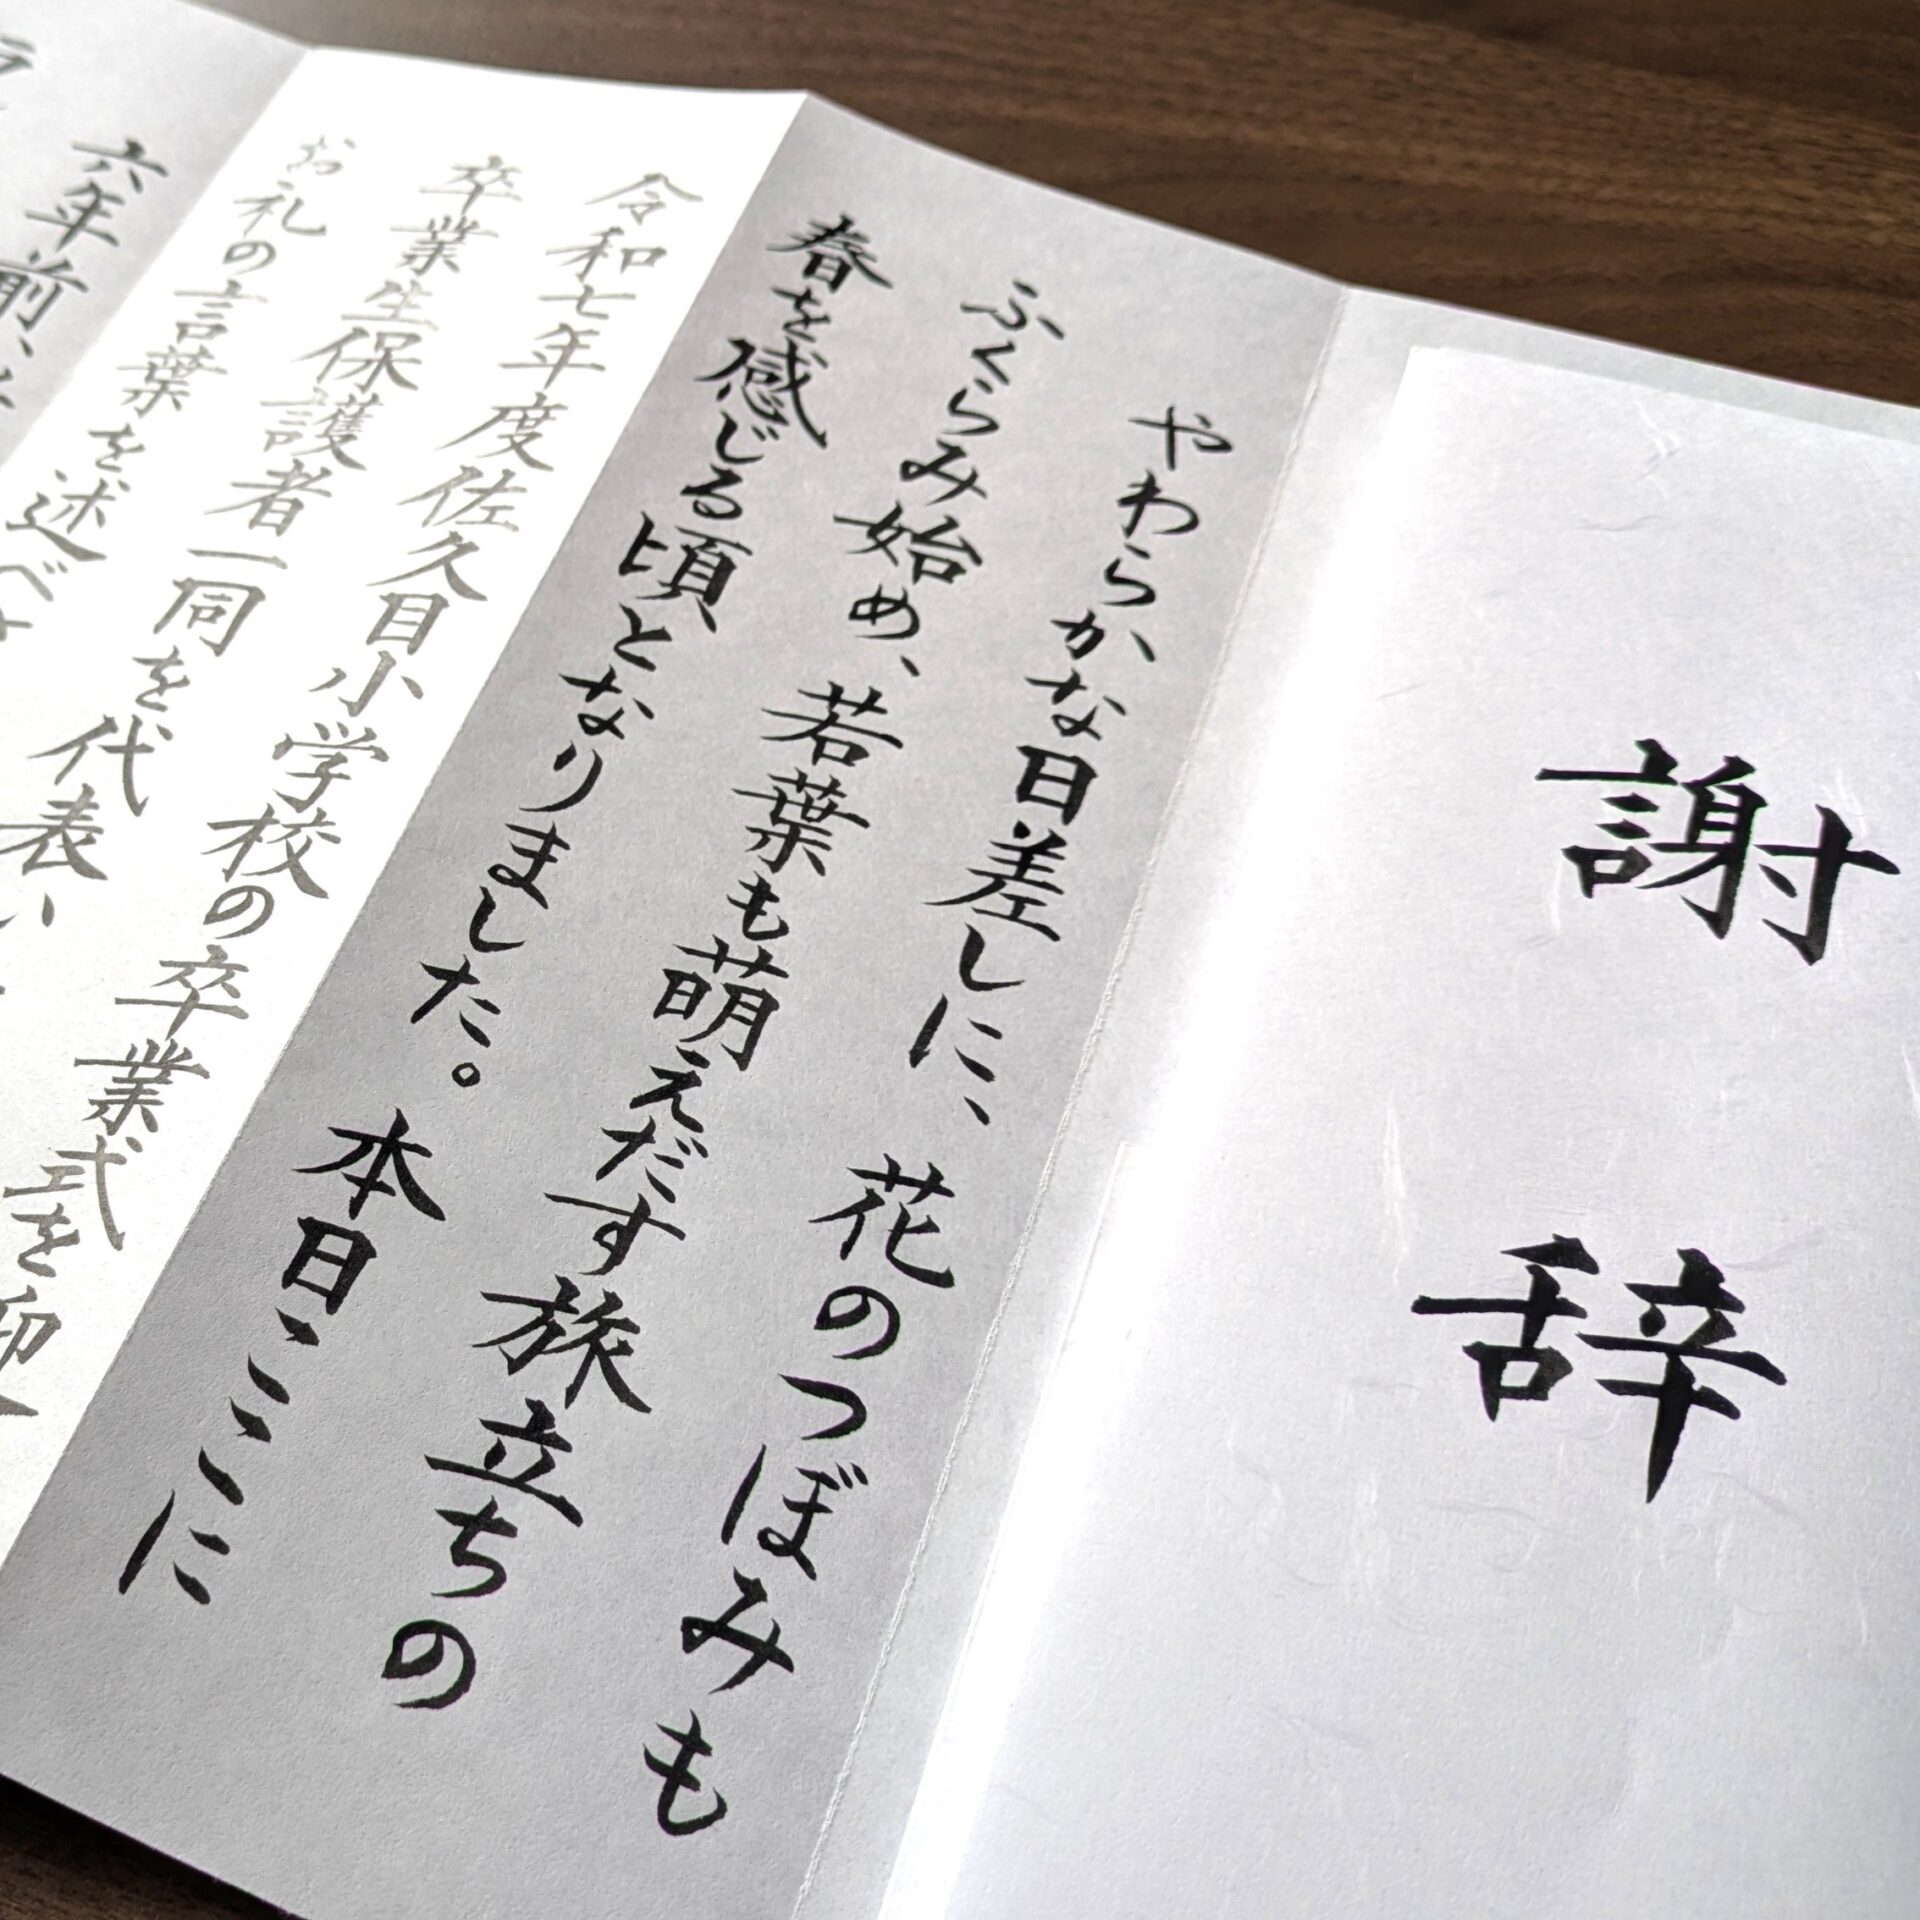 謝辞
やわらかな日差しに、花のつぼみも
ふくらみ始め、若葉も萌えだす旅立ちの
春を感じる頃となりました。本日ここに
令和七年度佐久目小学校の卒業式を迎
卒業生保護者一同を代表い
お礼の言葉を述べ
六年前、